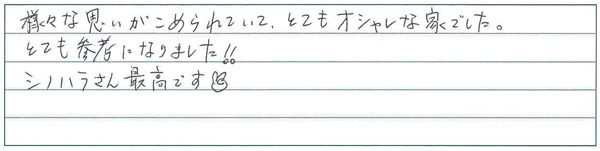 様々な思いがこめられていて、とてもオシャレな家でした。
とても参考になりました!!
シノハラさん最高です